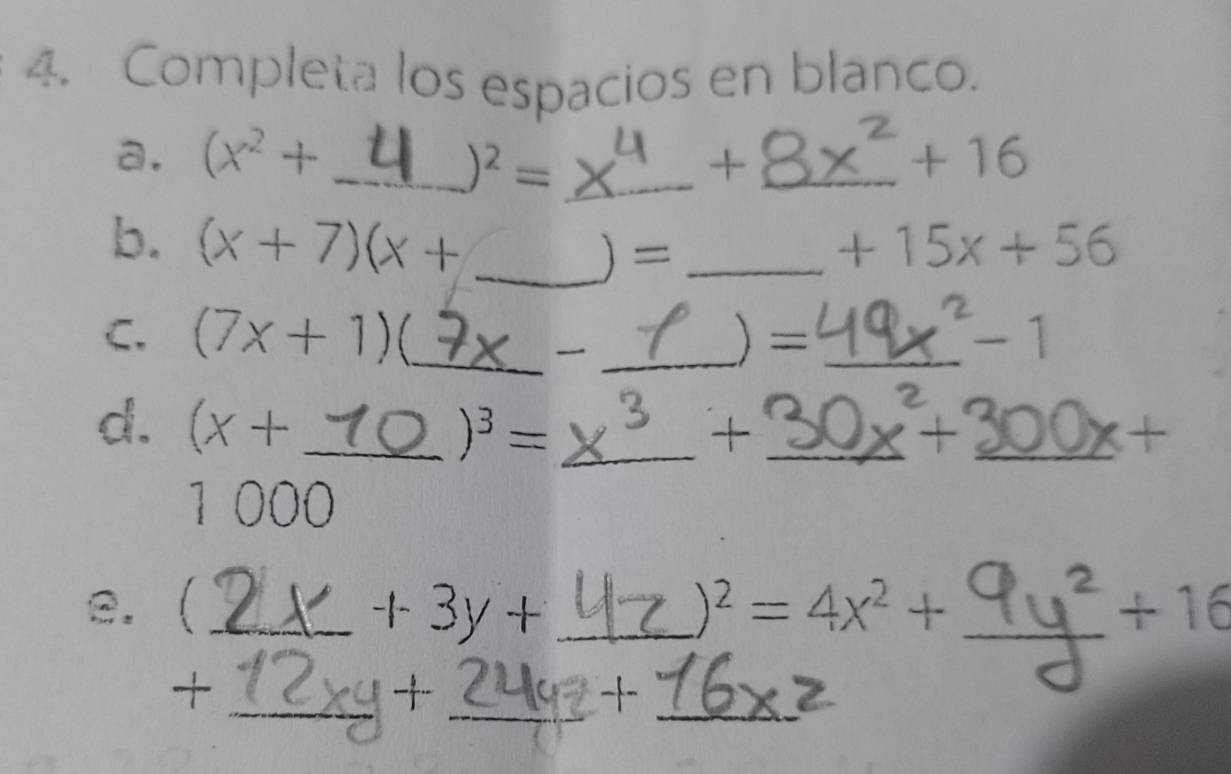 4. Completa los espacios en blanco.
a. (x² + 4 )² = x⁴ + 8x² + 16
b. (x + 7)(x + ____) = ____ + 15x + 56
c. (7x + 1)(7x - 1) = 49x² - 1
d. (x + 10 )³ = x³ + 30x² + 300x +
1 000
e. (2x + 3y + 4z )² = 4x² + 9y² + 16
+ 12xy + 24yz + 16xz